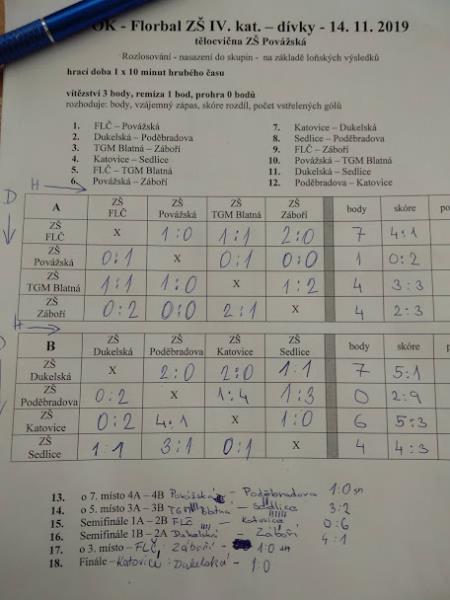 OK - Florbal ZŠ IV. kat. – dívky - 14. 11. 2019
tělocvična ZŠ Povážská
Rozlosování - nasazení do skupin - na základě loňských výsledků
hrací doba 1 x 10 minut hrubého času
vítězství 3 body, remíza 1 bod, prohra 0 bodů
rozhoduje: body, vzájemný zápas, skóre rozdíl, počet vstřelených gólů
1. FLČ – Povážská
2. Dukelská – Poděbradova
3. TGM Blatná – Záboří
4. Katovice – Sedlice
5. FLČ – TGM Blatná
6. Povážská – Záboří
7. Katovice – Dukelská
8. Sedlice – Poděbradova
9. FLČ – Záboří
10. Povážská – TGM Blatná
11. Dukelská – Sedlice
12. Poděbradova – Katovice
D H
A ZŠ FLČ ZŠ Povážská ZŠ TGM Blatná ZŠ Záboří body skóre po
ZŠ FLČ X 1:0 1:1 2:0 7 4:1
ZŠ Povážská 0:1 X 0:1 0:0 1 0:2
ZŠ TGM Blatná 1:1 1:0 X 1:2 4 3:3
ZŠ Záboří 0:2 0:0 2:1 X 4 2:3
H
B ZŠ Dukelská ZŠ Poděbradova ZŠ Katovice ZŠ Sedlice body skóre p
ZŠ Dukelská X 2:0 2:0 1:1 7 5:1
ZŠ Poděbradova 0:2 X 1:4 1:3 0 2:9
ZŠ Katovice 0:2 4:1 X 1:0 6 5:3
ZŠ Sedlice 1:1 3:1 0:1 X 4 4:3
13. o 7. místo 4A – 4B Povážská - Poděbradova 1:0 sn
14. o 5. místo 3A – 3B TGM Blatná - Sedlice 3:2
15. Semifinále 1A – 2B FLČ - Katovice 0:6
16. Semifinále 1B – 2A Dukelská - Záboří 4:1
17. o 3. místo – FLČ : Záboří - 1:0 sn
18. Finále – Katovice : Dukelská - 1:0